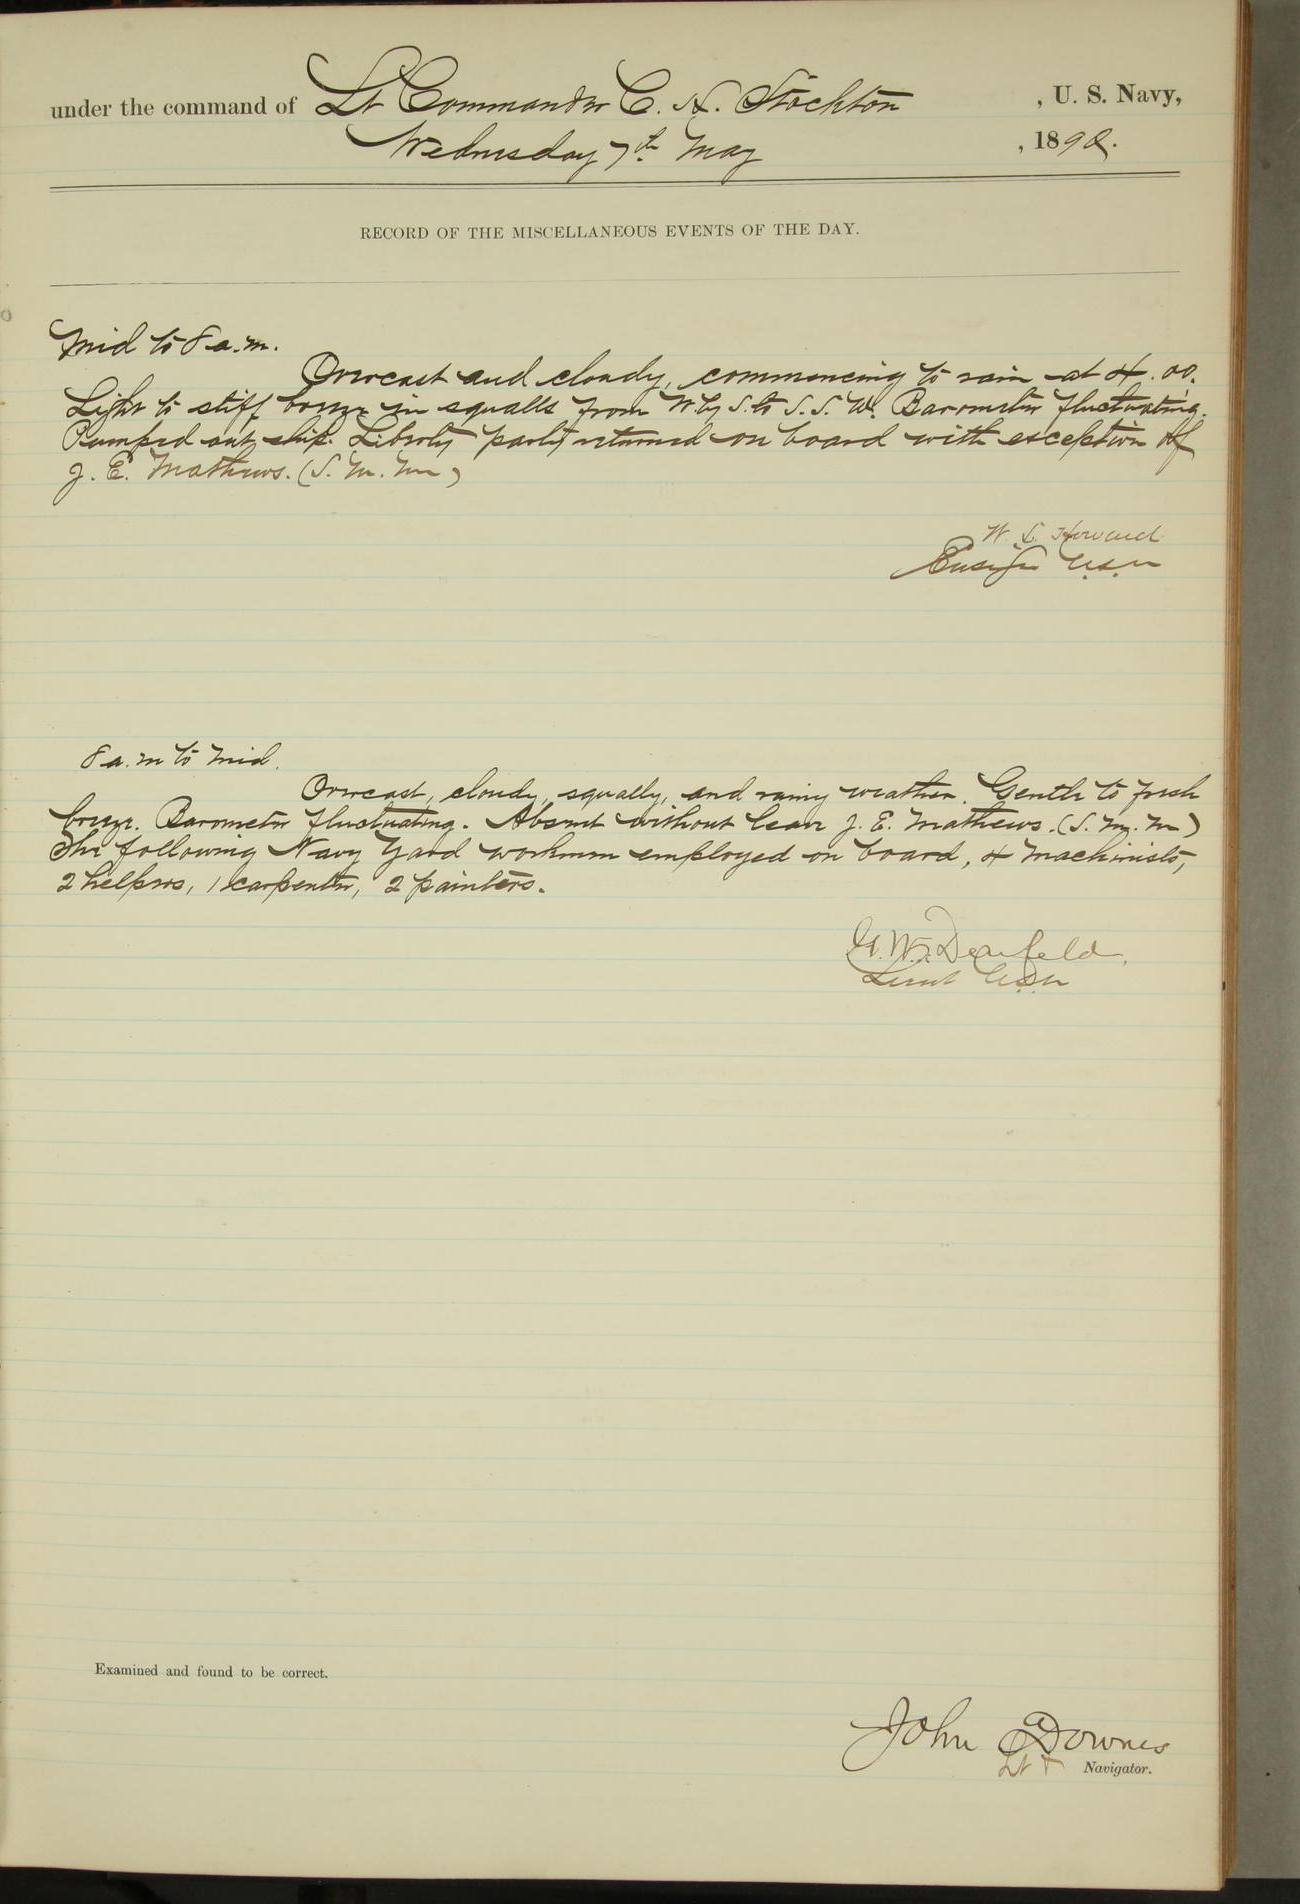 under the command of Lt Commander C. H. Stockton, U. S. Navy,
Wednesday 7th May, 1890.
RECORD OF THE MISCELLANEOUS EVENTS OF THE DAY.
Mid to 8 a.m.
Overcast and cloudy, commencing to rain at 4.00.
Light to stiff breeze in squalls from W. by S. to S. S. W. Barometer fluctuating.
Pumped out ship. Liberty party returned on board with exception of
J. E. Mathews. (S. M. M)
W. L. Howard
Ensign U.S.N
8 a.m to Mid.
Overcast, cloudy, squally, and rainy weather. Gentle to fresh
breeze. Barometer fluctuating. Absent without leave J. E. Mathews. (S. M. M)
The following Navy Yard workmen employed on board, 4 machinists,
2 helpers, 1 carpenter, 2 painters.
G. W. Denfeld,
Lieut U.S.N
Examined and found to be correct.
John Downes
Lt & Navigator.